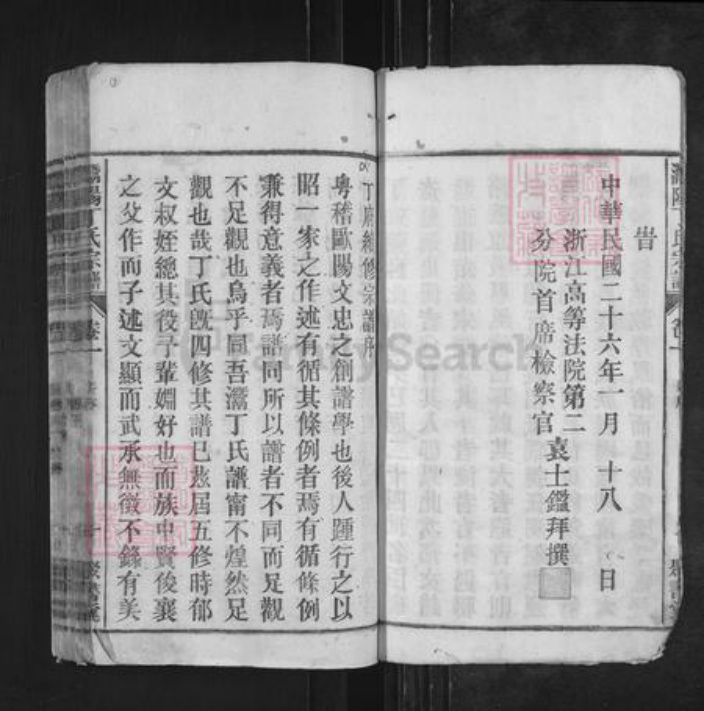 告
中華民國二十六年一月十八日
浙江高等法院第二
分院首席檢察官 袁士鑑拜撰
丁族續修宗譜序
粵稽歐陽文忠之創譜學也後人踵行之以
昭一家之作述有循其條例者焉有循條例
兼得意義者焉譜同所以譜者不同而足觀
不足觀也烏乎同吾灊丁氏譜甯不煌然足
觀也哉丁氏旣四修其譜已玆屆五修時郁
文叔姪總其役予輩婣好也而族中賢俊襄
之父作而子述文顯而武承無徵不錄有美
丁氏宗譜
卷一
FamilySearch